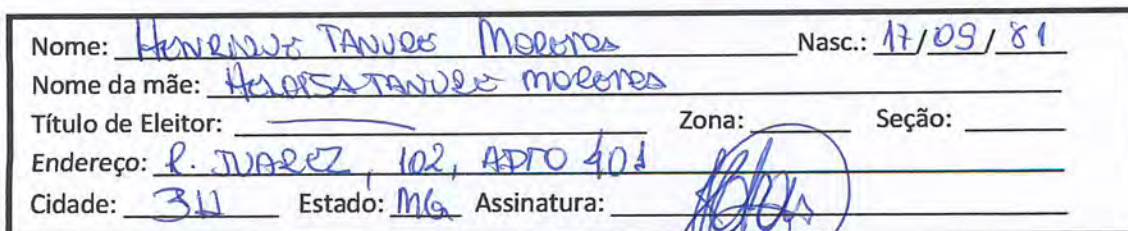 Nome: HENRIQUE TANURE MOREIRA Nasc.: 17/09/81
Nome da mãe: HELOISA TANURE MOREIRA
Título de Eleitor: Zona: Seção:
Endereço: R. JUAREZ, 102, APTO 401
Cidade: BH Estado: MG Assinatura: